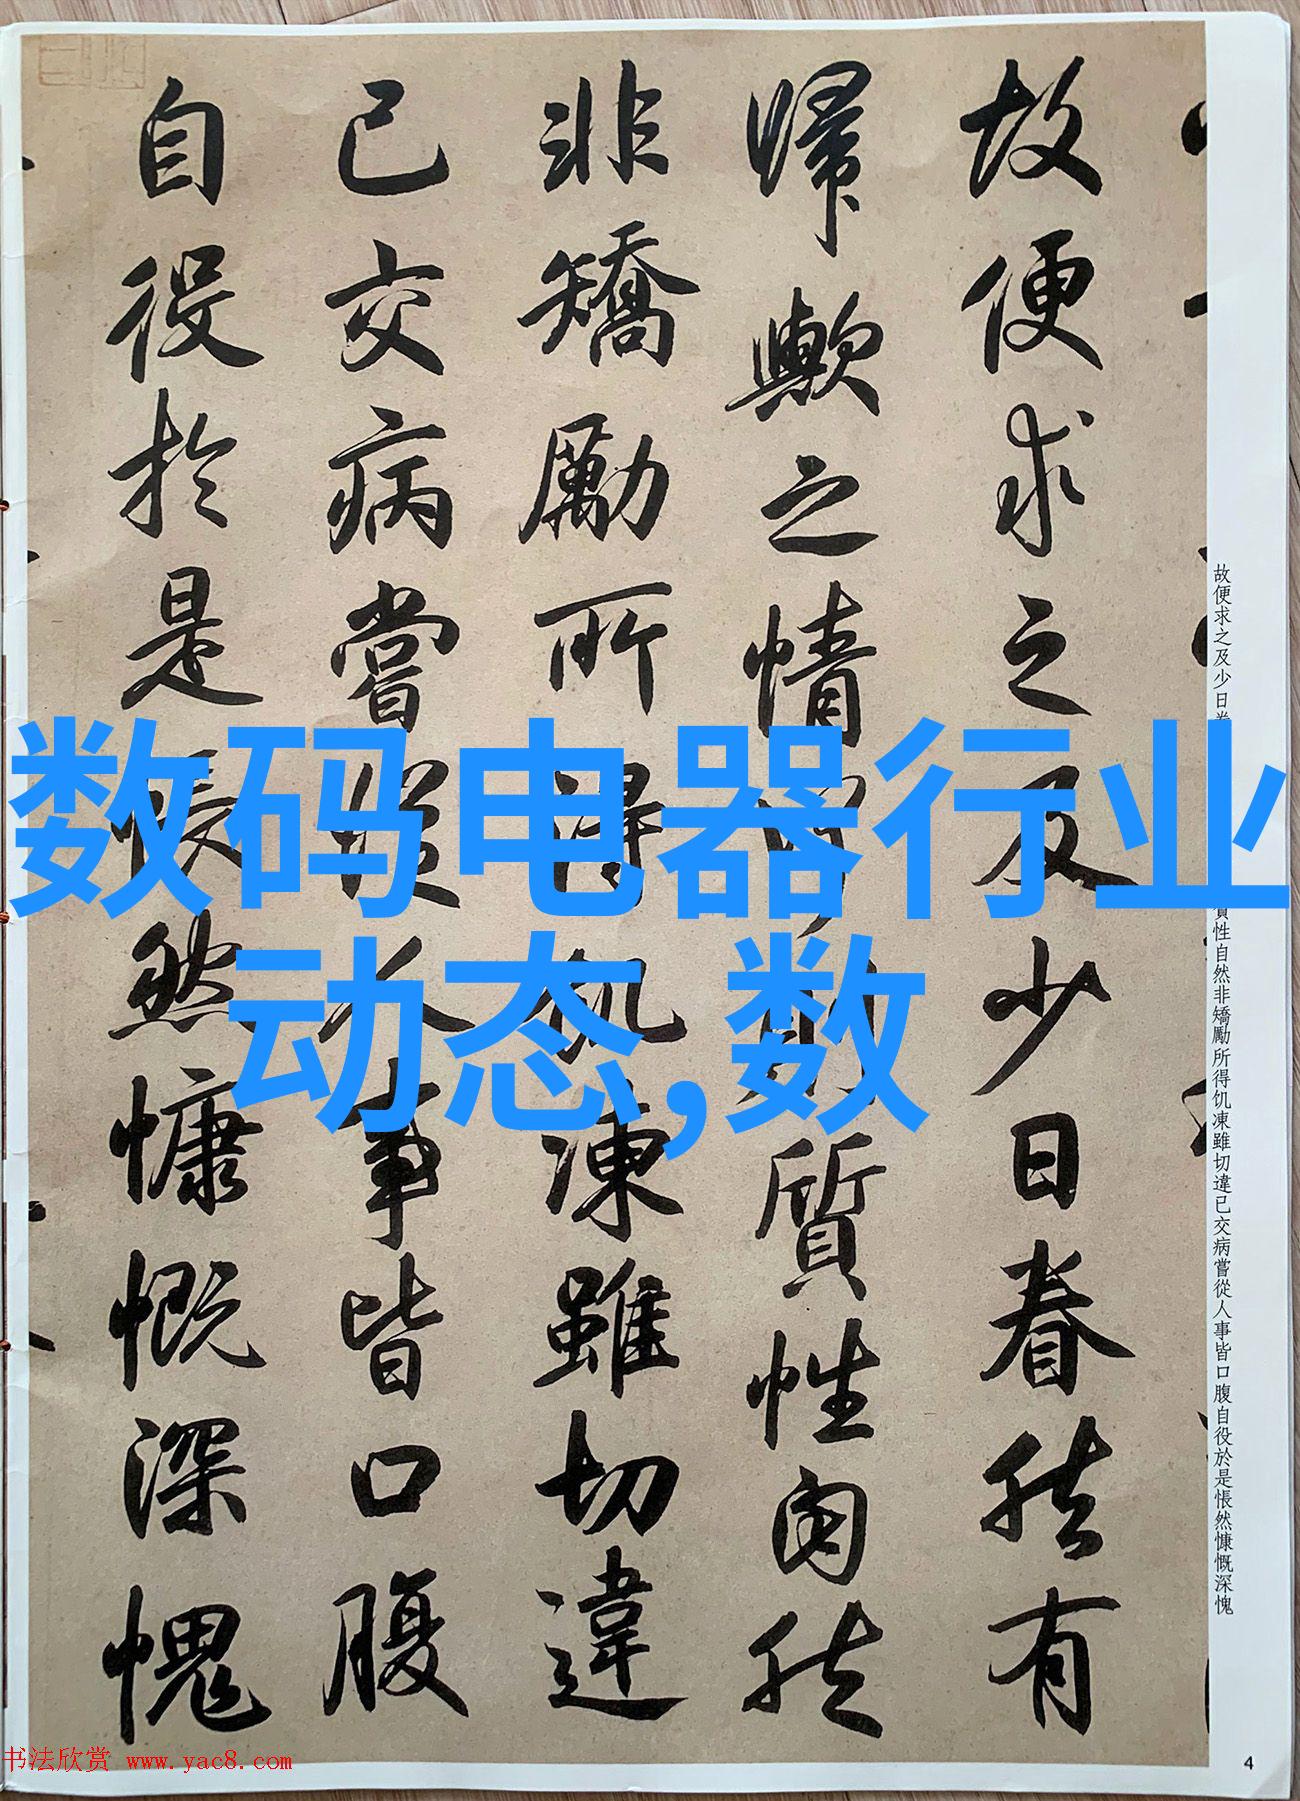 故便求之及少日眷然有
歸歟之情質性自然
非矯勵所得飢凍雖切違
已交病嘗從人事皆口腹
自役於是悵然慷慨深愧
故便求之及少日眷
質性自然非矯勵所得饥凍雖切違已交病嘗從人事皆口腹自役於是悵然慷慨深愧
数码电器行业
动态,数
书法欣赏 www.yac8.com
4